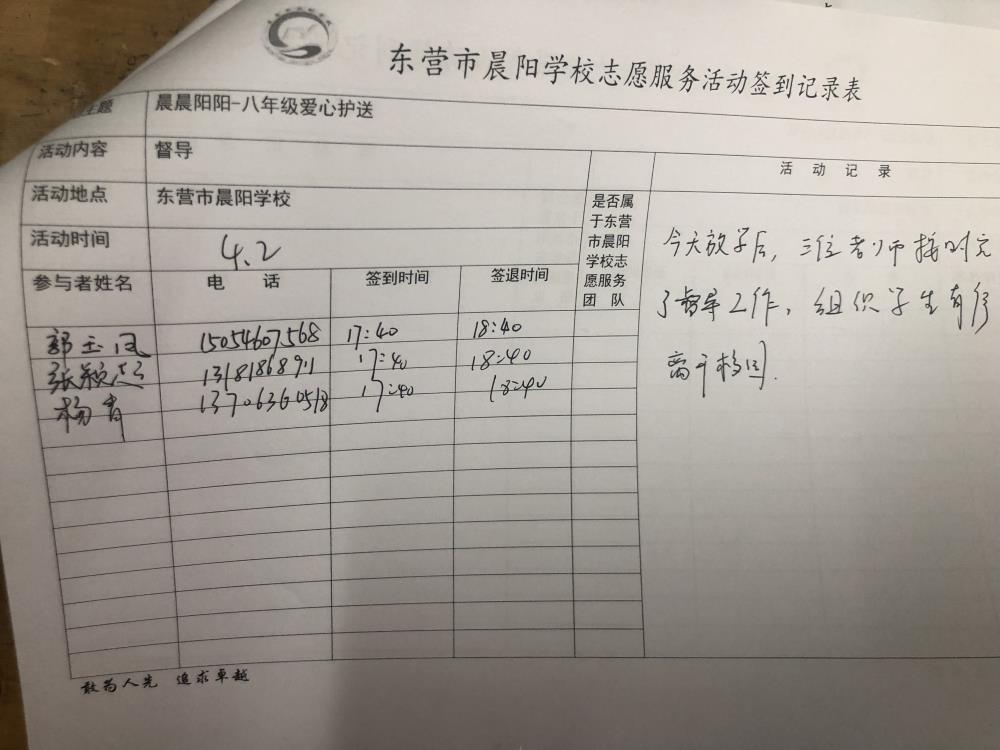 东营市晨阳学校志愿服务活动签到记录表
主题 晨晨阳阳-八年级爱心护送
活动内容 督导
活动地点 东营市晨阳学校
活动时间 4.2
参与者姓名 电 话 签到时间 签退时间 是否属于东营市晨阳学校志愿服务团 队 活 动 记 录
郭玉凤 15054607568 17:40 18:40
张颖 17:40 18:40
杨青 13706360518 17:40 18:40
今天放学后，三位老师按时完
了督导工作，组织学生有序
离开校园.
敢为人先 追求卓越